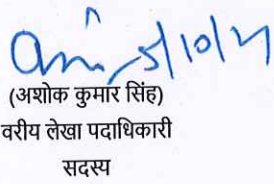 5/10/21
(अशोक कुमार सिंह)
वरीय लेखा पदाधिकारी
सदस्य